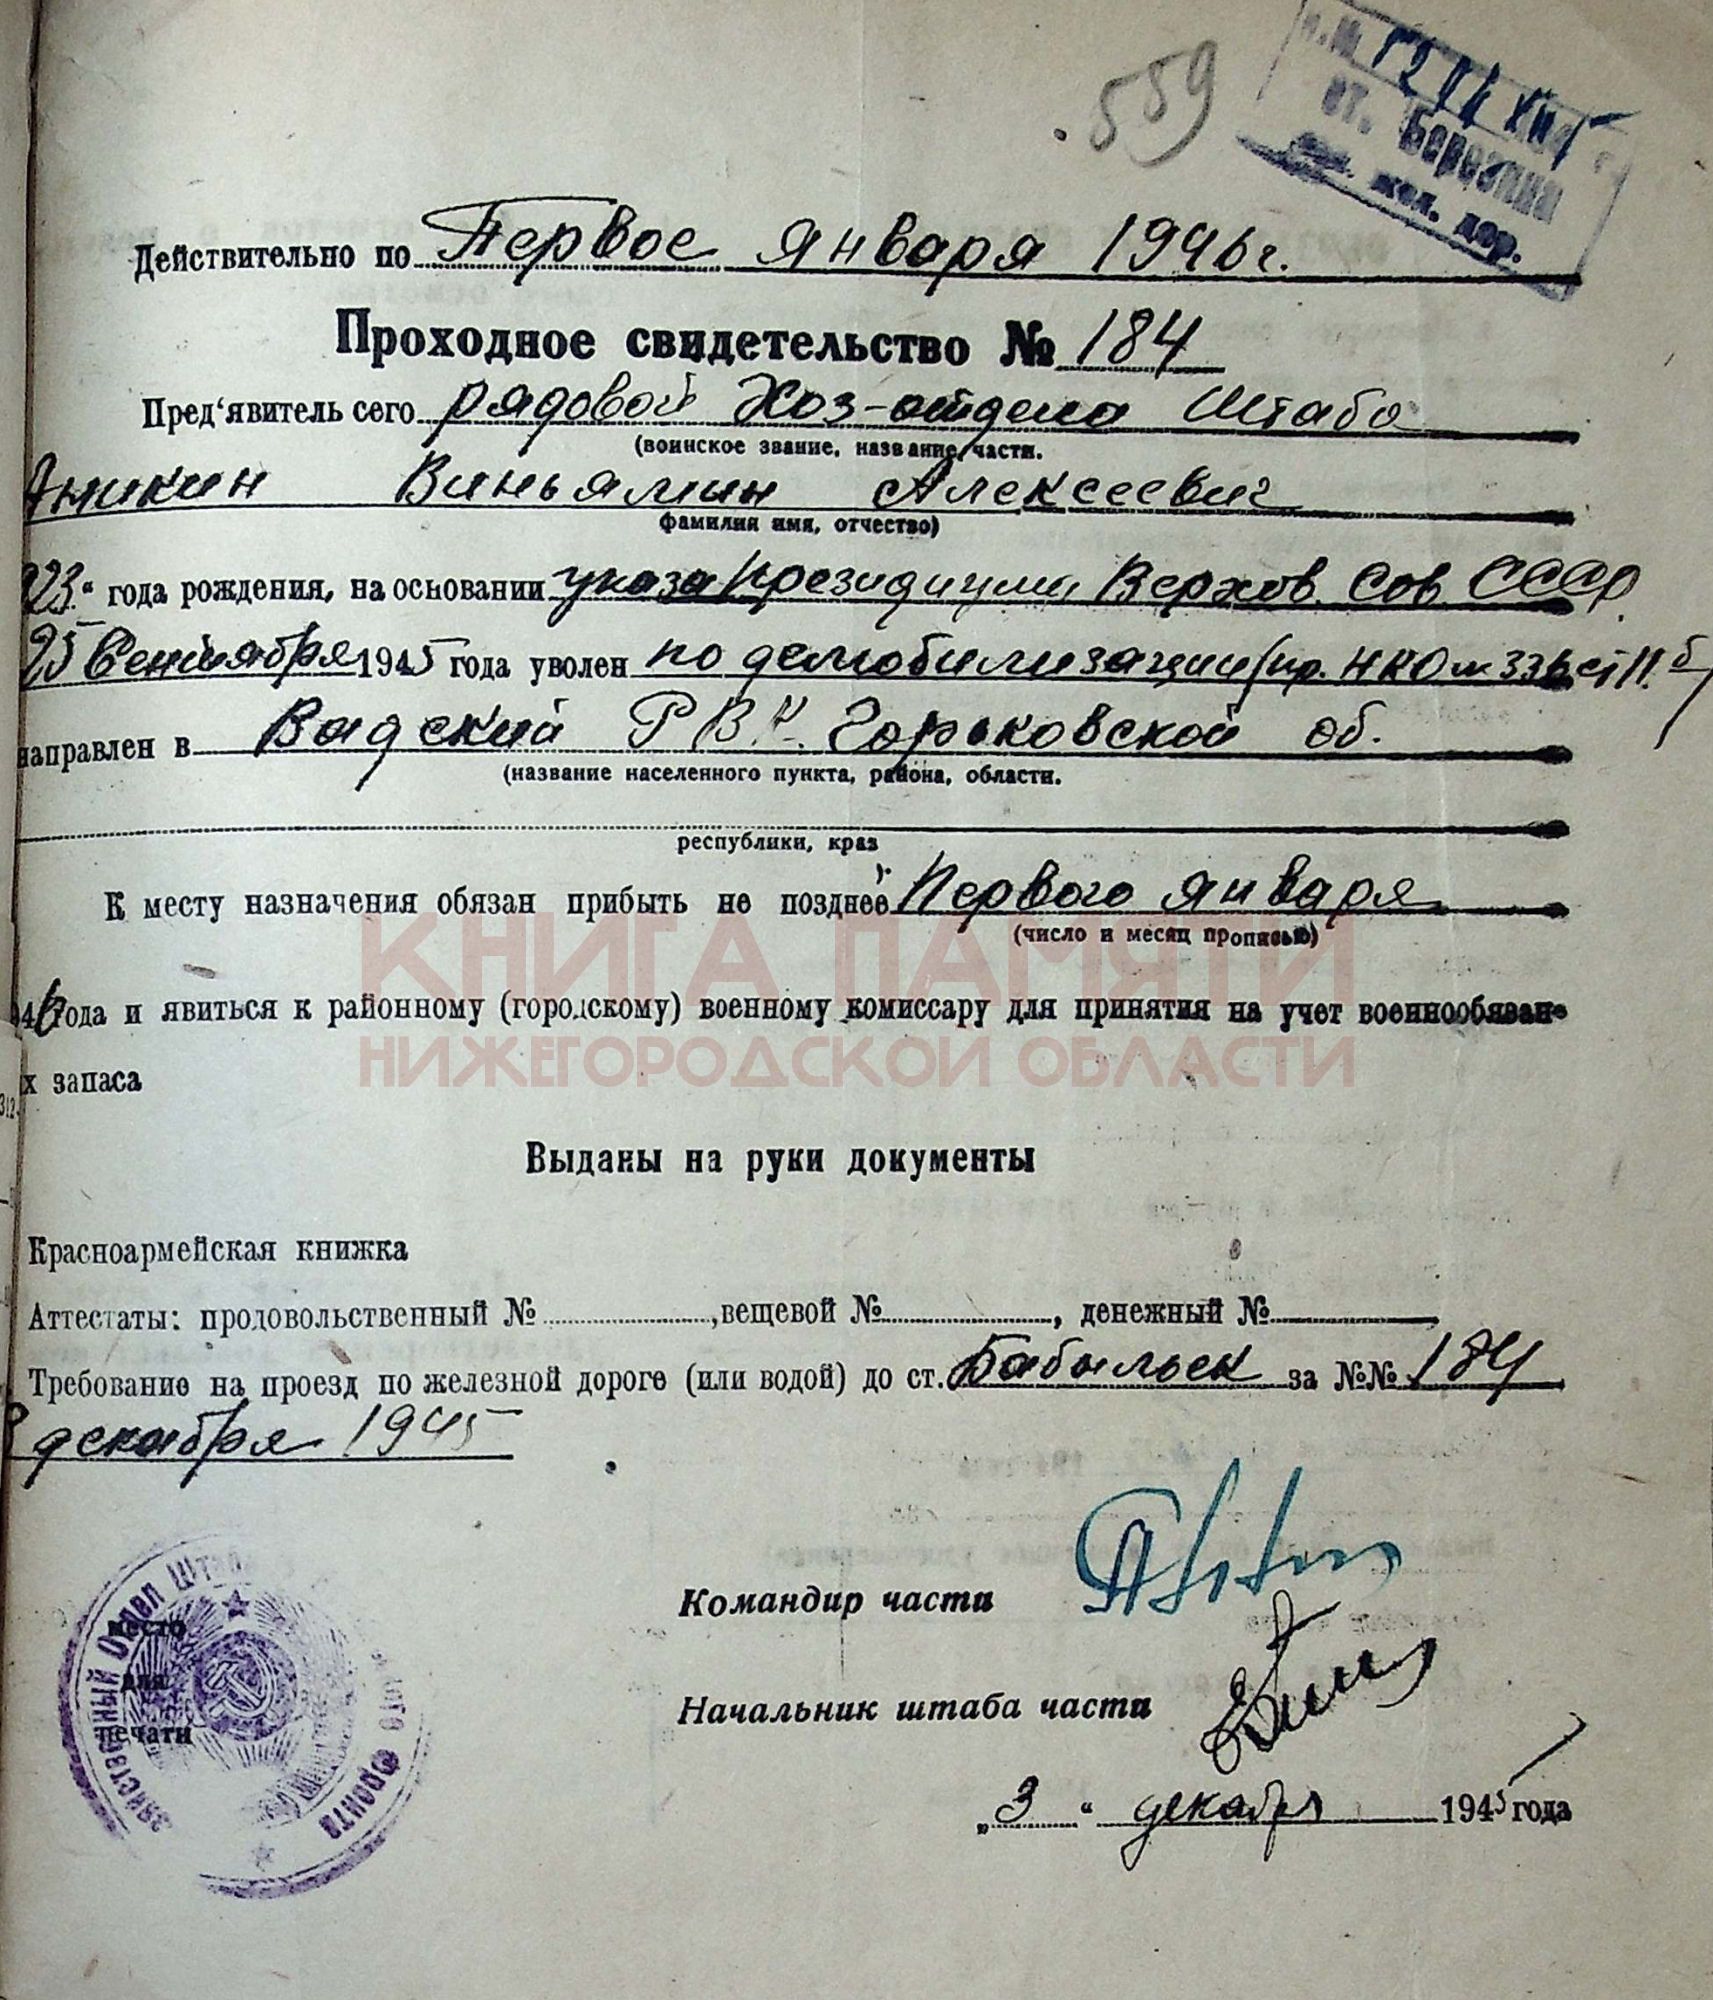 559
ст. Березина
жел. дор.
Действительно по Первое января 1946 г.
Проходное свидетельство № 184
Пред‘явитель сего рядовой Хоз-отдела Штаба
(воинское звание, название части.
Аникин Виньямин Алексеевич
фамилия имя, отчество)
923 “ года рождения, на основании указа Президиума Верхов. Сов. СССР
25 Сентября 1945 года уволен по демобилизации (пр. НКО № 336 ст 11. б)
направлен в Вадский РВК. Горьковской об.
(название населенного пункта, района, области.
республики, края
К месту назначения обязан прибыть не позднее Первого января
(число и месяц прописью)
КНИГА ПАМЯТИ
946 года и явиться к районному (городскому) военному комиссару для принятия на учет военнообязан-
НИЖЕГОРОДСКОЙ ОБЛАСТИ
х запаса
312.
Выданы на руки документы
Красноармейская книжка
Аттестаты: продовольственный № , вещевой № , денежный №
Требование на проезд по железной дороге (или водой) до ст. за №№ 184
декабря 1945
Командир части
Начальник штаба части
место
для
печати
Отдел Штаба
Фронта
„ 3 “ декабря 1945 года